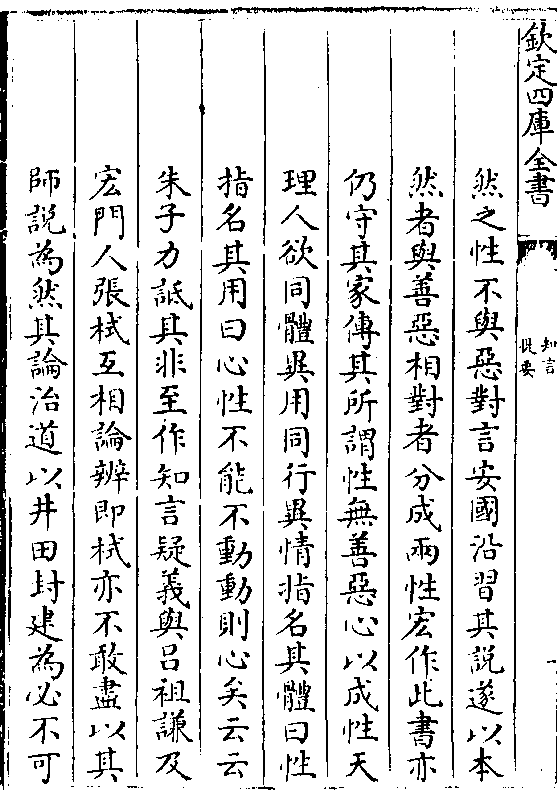 欽定四庫全書
知言
提要
然之性不與惡對言安國沿習其說遂以本
然者與善惡相對者分成兩性宏作此書亦
仍守其家傳其所謂性無善惡心以成性天
理人欲同體異用同行異情指名其體曰性
指名其用曰心性不能不動動則心矣云云
朱子力詆其非至作知言疑義與呂祖謙及
宏門人張栻互相論辨即栻亦不敢盡以其
師說為然其論治道以井田封建為必不可